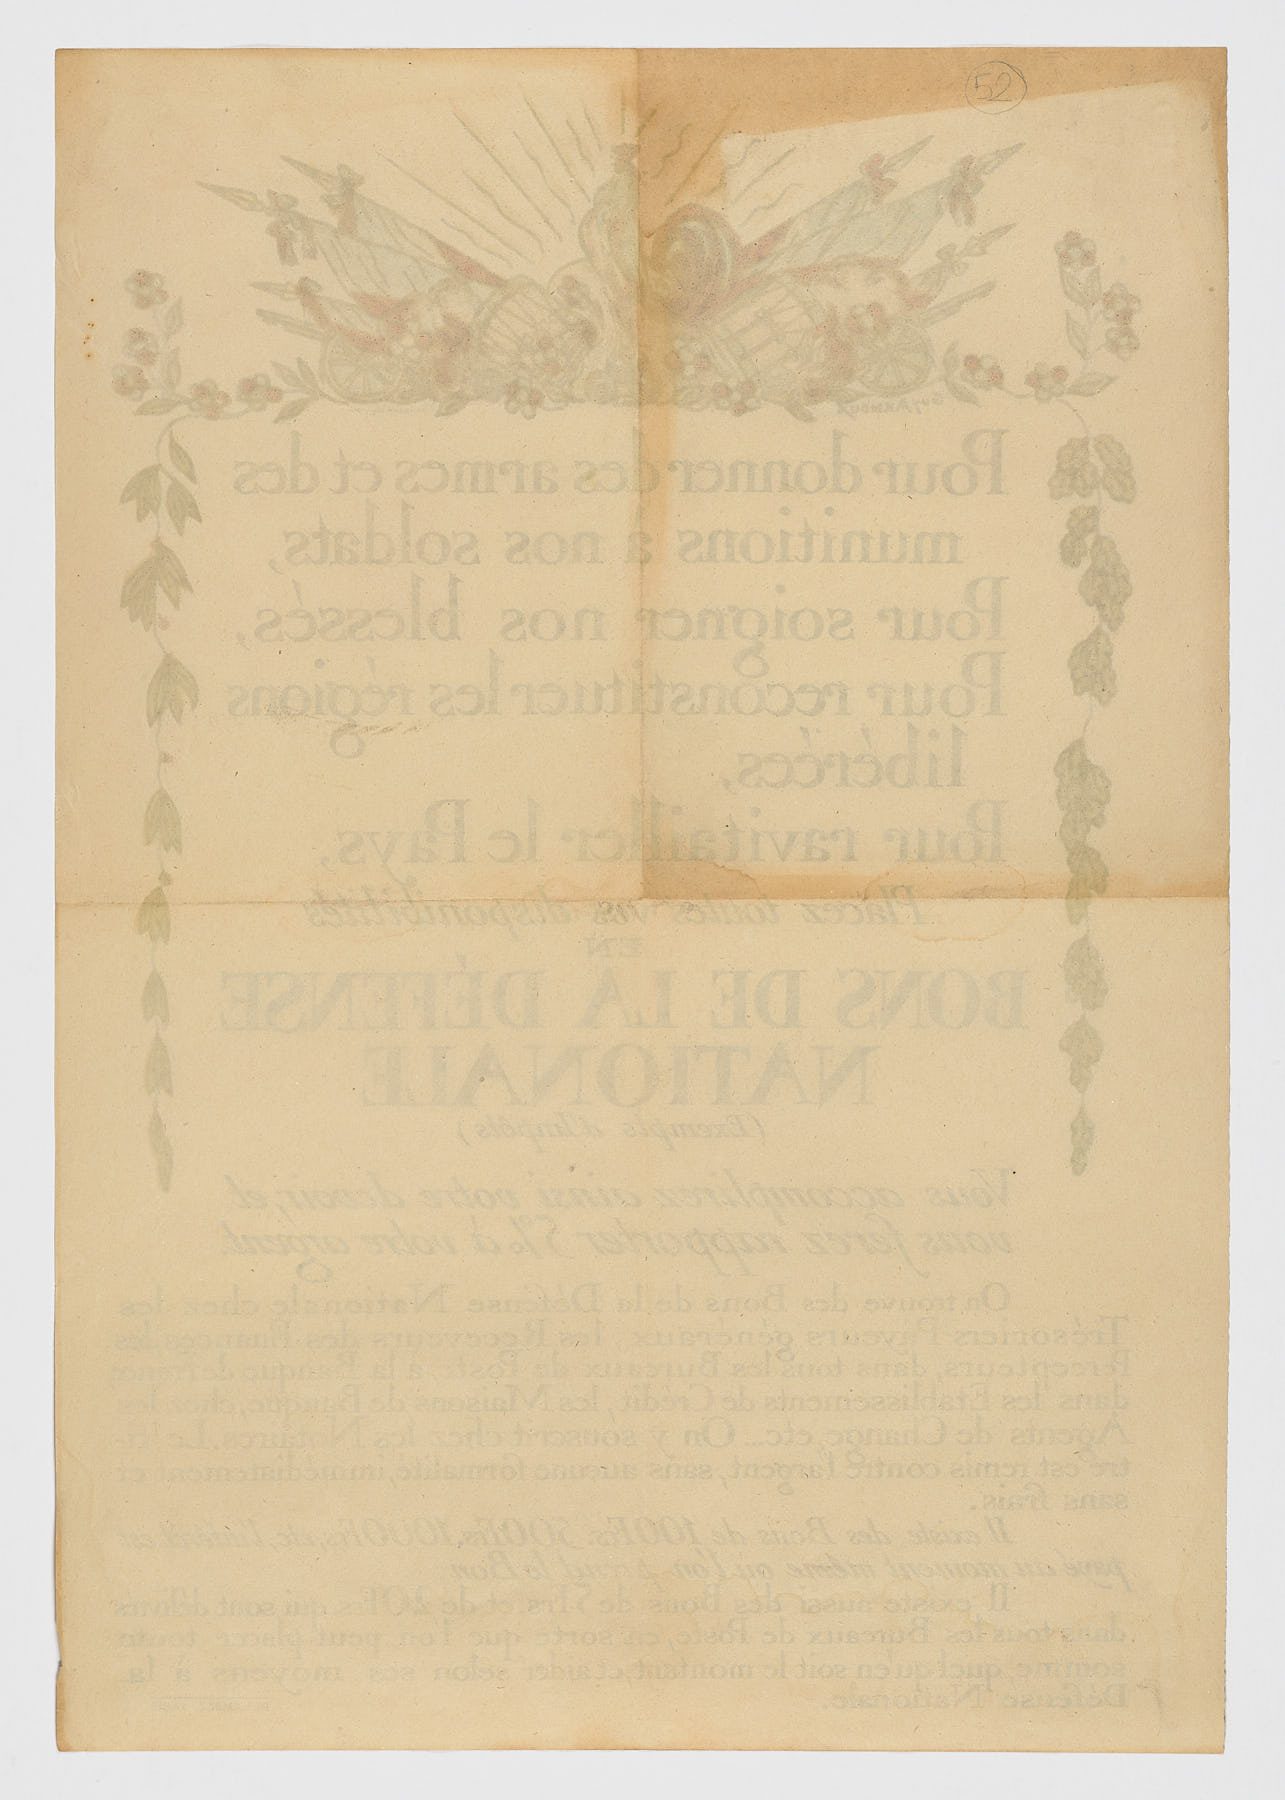 52
Pour donner des armes et des
munitions à nos soldats,
Pour soigner nos blessés,
Pour reconstituer les régions
libérées,
Pour ravitailler le Pays,
Placez toutes vos disponibilités
EN
BONS DE LA DÉFENSE
NATIONALE
(Exempts d'Impôts)
Vous accomplirez ainsi votre devoir, et
vous ferez rapporter 5% à votre argent.
On trouve des Bons de la Défense Nationale chez les
Trésoriers Payeurs généraux, les Receveurs des Finances, les
Percepteurs, dans tous les Bureaux de Poste, à la Banque de France,
dans les Etablissements de Crédit, les Maisons de Banque, chez les
Agents de Change, etc... On y souscrit chez les Notaires. Le ti-
tre est remis contre l'argent, sans aucune formalité, immédiatement et
sans frais.
Il existe des Bons de 100Frs, 500Frs, 1000Frs, etc, l'intérêt est
payé au moment même où l'on prend le Bon.
Il existe aussi des Bons de 5Frs et de 20Frs, qui sont délivrés
dans tous les Bureaux de Poste, en sorte que l'on peut placer toute
somme, quel qu'en soit le montant, et aider selon ses moyens à la
Défense Nationale.